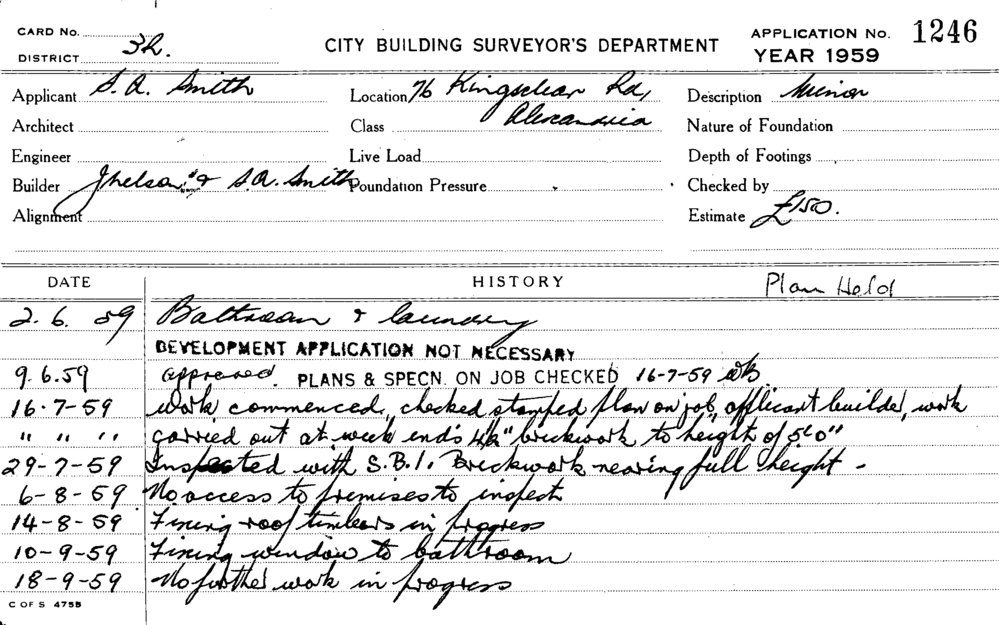 CARD No.
DISTRICT 3R.
CITY BUILDING SURVEYOR'S DEPARTMENT
APPLICATION No. 1246
YEAR 1959
Applicant S. A. Smith Location 76 Kingsclear Rd, Description Minor
Architect Class Alexandria Nature of Foundation
Engineer Live Load Depth of Footings
Builder & S.A. Smith Foundation Pressure Checked by
Alignment Estimate £150.
DATE HISTORY Plan Held
2.6.59 Bathroom & laundry
DEVELOPMENT APPLICATION NOT NECESSARY
9.6.59 approved. PLANS & SPECN. ON JOB CHECKED 16-7-59
16-7-59 work commenced, checked stamped plan on job, applicant builder, work
" " " carried out at week ends 4½" brickwork to height of 5'0"
29-7-59 Inspected with S.B.I. Brickwork nearing full height -
6-8-59 No access to premises to inspect
14-8-59 Fixing roof timbers in progress
10-9-59 Fixing window to bathroom
18-9-59 No further work in progress
C OF S 475B